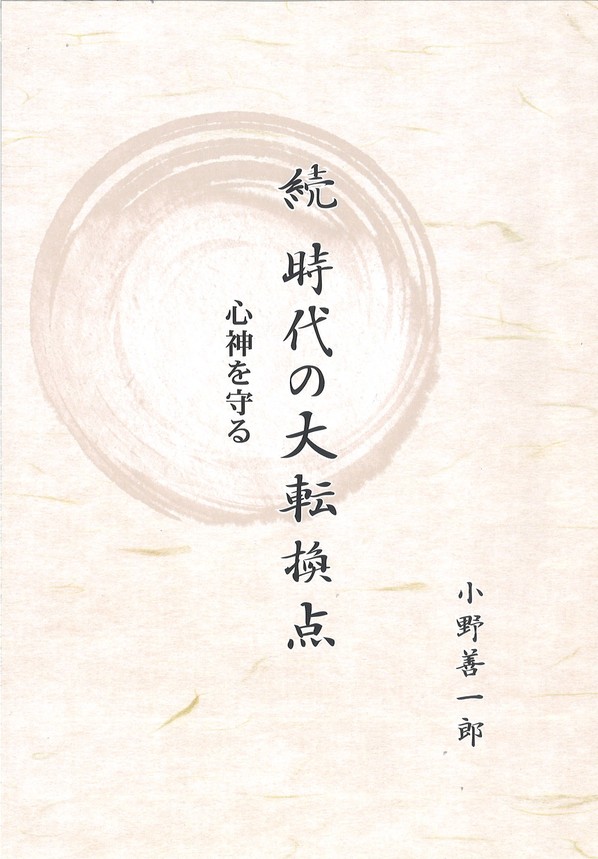 続 時代の大転換点
心神を守る
小野善一郎